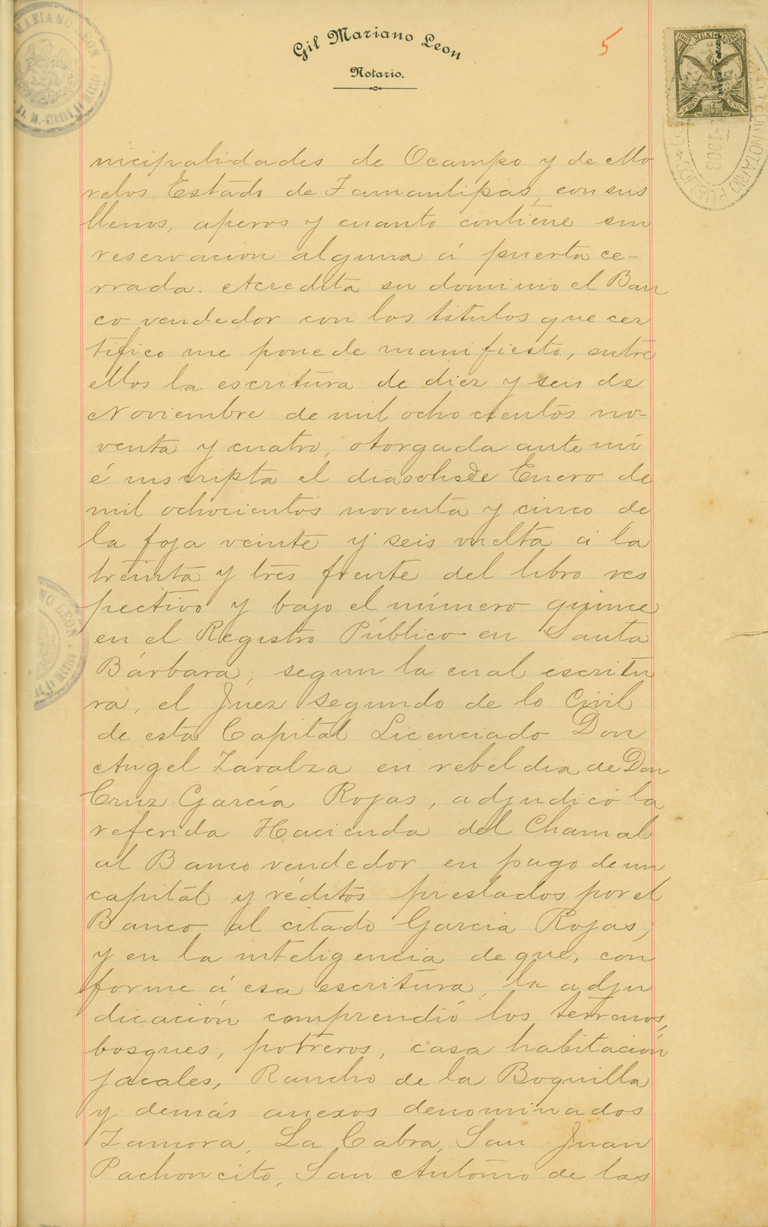 Gil Mariano Leon
Notario.
5
MARIANO LEON
MEXICO
NOTARIO PUBLICO
NO LEON
nicipalidades de Ocampo y de Mo
relos Estado de Tamaulipas, con sus
llenos, aperos y cuanto contiene sin
reservacion alguna á puerta ce-
rrada. Acredita su dominio el Ban
co vendedor con los titulos que cer
tifico me pone de manifiesto, entre
ellos la escritura de diez y seis de
Noviembre de mil ochocientos no-
venta y cuatro, otorgada ante mi
é inscripta el dia ocho de Enero de
mil ochocientos noventa y cinco de
la foja veinte y seis vuelta á la
treinta y tres frente del libro res
pectivo y bajo el número quince
en el Registro Público en Santa
Bárbara, segun la cual escritu
ra, el Juez segundo de lo Civil
de esta Capital Licenciado Don
Angel Zavalza en rebeldia de Don
Cruz García Rojas, adjudicó la
referida Hacienda del Chamal
al Banco vendedor en pago de un
capital y réditos prestados por el
Banco al citado García Rojas,
y en la inteligencia de que, con
forme á esa escritura, la adju
dicación comprendió los terrenos,
bosques, potreros, casa habitación
jacales, Rancho de la Boquilla
y demás anexos denominados
Zamora, La Cabra, San Juan
Pachoncito, San Antonio de las